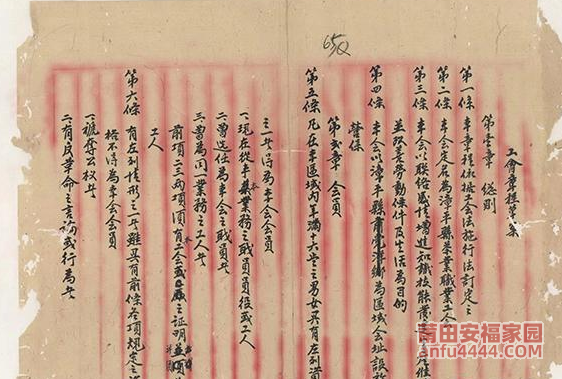 65Q
工會章程草案
第壹章 總則
第一條 本章程依據工会法施行法訂定之
第二條 本会定名為漳平縣茶業職業工人
第三條 本会以联络感情增進知識技能發
並改善勞動條件及生活為目的
第四條 本会以漳平縣 為區域会址設於
營條
第貳章 会員
第五條 凡在本區域內年滿十六歲之男女具有左列資
之一者得為本会会員
一、現在從事本業務之職員員役或工人
二、曾选任為本会之職員者
三、曾為同一業務之工人者
前項二三两項須有工会或本廠之証明並須
工人
第六條 有左列情形之一者雖具有前條各項規定之資
格不得為本会会員
一、褫奪公权者
二、有反革命之言論或行為者
莆田安福家园
anfu4444.com